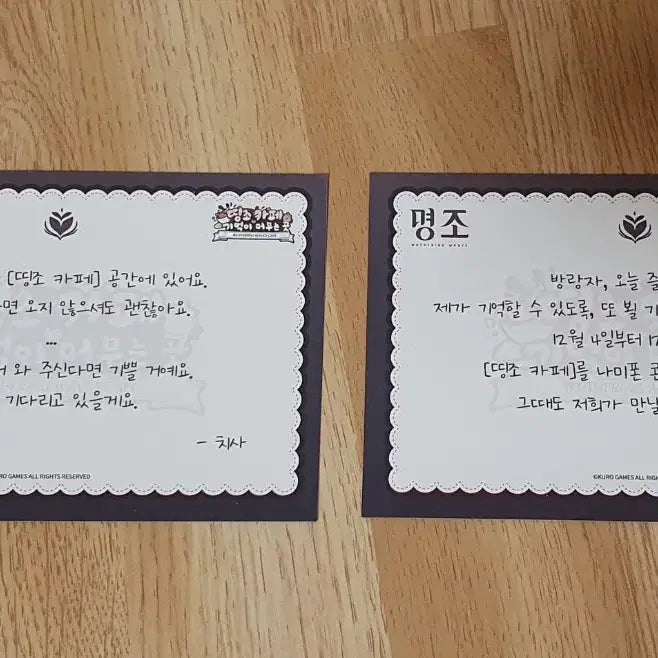 띵조 카페
기억이 머무는 곳
[띵조 카페] 공간에 있어요.
면 오지 않으셔도 괜찮아요.
...
와 주신다면 기쁠 거예요.
기다리고 있을게요.
- 치사
KURO GAMES ALL RIGHTS RESERVED
명조
WUTHERING WAVES
방랑자, 오늘 즐
제가 기억할 수 있도록, 또 뵐 기
12월 4일부터 12
[띵조 카페]를 나미폰 콘
그때도 저희가 만날
©KURO GAMES ALL RIGH